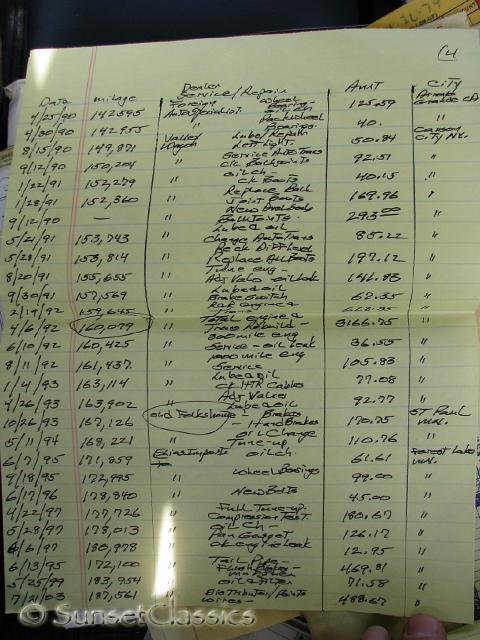 (4
Date milage Dealer Service/Repair Amt City
4/25/90 142595 Foreign Auto Specialist Wheel Bearing - oil ch 125.59 Arroyo Grande CA
4/30/90 142,955 " Pack wheel Bearings 40. "
8/15/90 149,871 Valley Lube/Repair Left Light. 50.84 Carson City NV.
9/12/90 150,204 " Service Auto Trans Ck Ball joints 92.51 "
1/22/91 152,279 " oil ch - CK Boots 40.15 "
1/28/91 152,360 " Replace Ball Joint Boots 169.96 "
9/12/90 — " New Ball Joints. 293.00 "
5/21/91 153,743 " Lube & oil Change Auto Trans 85.22 "
5/28/91 153,814 " Replace All Boots 197.12 "
8/20/91 155,655 " Tune eng - Adj Valv oil Leak 141.83 "
9/30/91 157,569 " Lube & oil Brake Switch 62.35 "
2/19/92 159,645 " "
4/6/92 160,079 " Total engine & Trans Rebuild - 3166.75 "
6/10/92 160,425 " 300 mile eng Service - oil leak 36.50 "
8/11/92 161,437 " 1000 mile eng Service 105.83 "
1/4/93 163,114 " Lube & oil CK HTR Cables 77.08 "
4/26/93 163,902 " Adj Valves Lube & oil 92.77 "
10/26/93 167,126 Old Folks Brakes - Hand Brakes 170.75 St Paul MN.
5/11/94 168,221 " oil Change Tune-up 110.76 "
6/7/95 171,859 Imports oil ch. 61.61 Forest Lake MN.
9/18/95 172,995 " wheel Bearings 99.00 "
6/17/96 178,340 " New Belts 45.00 "
4/22/97 177,726 " Full Tune-up. Compression Test. 180.67 "
5/28/97 178,013 " oil Ch - Pan Gasget 126.17 "
6/6/97 180,978 " Ck eng oil Leak 12.95 "
6/13/95 172,100 " Tail Pipe - 469.81 "
5/25/99 183,954 " oil & Filter 71.58 "
7/21/03 187,561 " Distributor/Points wires - 488.67 "
© SunsetClassics